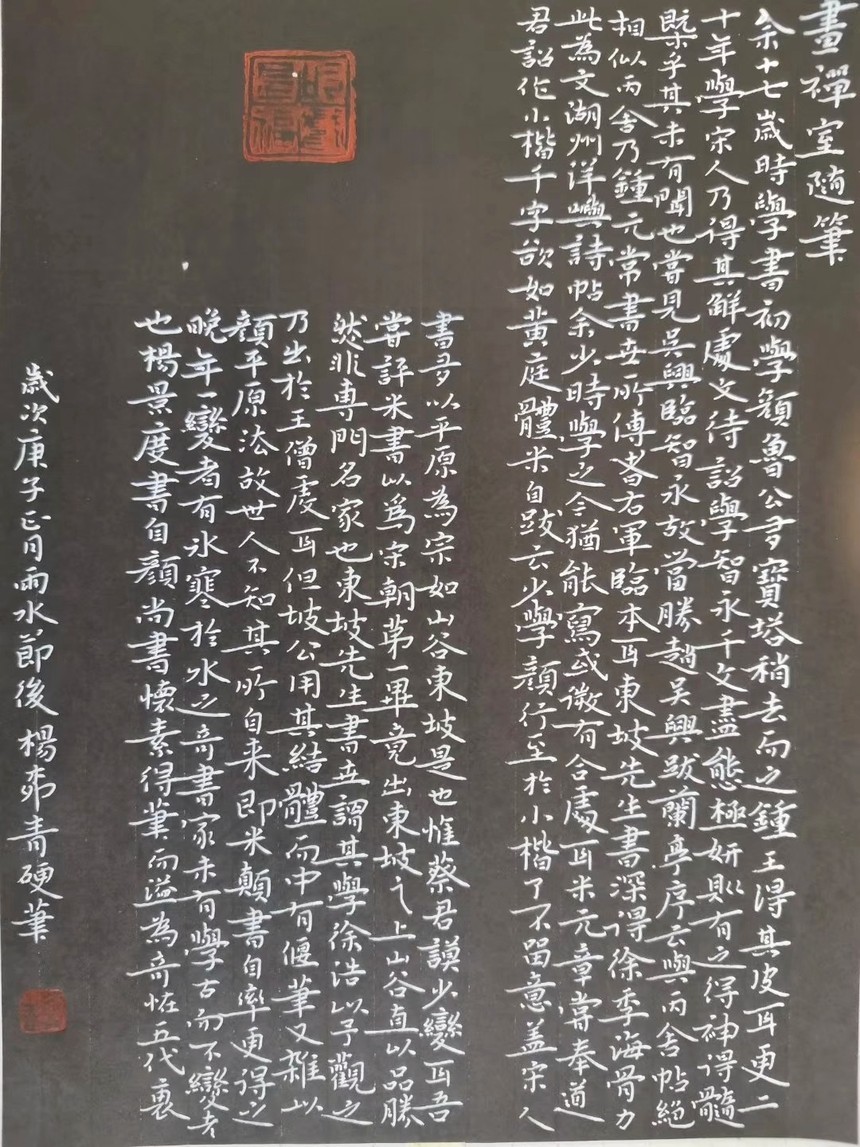 畫禪室隨筆
余十七歲時學書初學顏魯公多寶塔稍去而之鍾王得其皮耳更二
十年學宋人乃得其解處文待詔學智永千文盡態極妍則有之得神得髓
槩乎其未有聞也嘗見吳興臨智永故當勝趙吳興跋蘭亭序云與丙舍帖絕
相似丙舍乃鍾元常書世所傳者右軍臨本耳東坡先生書深得徐季海骨力
此為文湖州洋嶼詩帖余少時學之今猶能寫或微有合處耳米元章嘗奉道
君詔作小楷千字欲如黃庭體米自跋云少學顏行至於小楷了不留意蓋宋人
書多以平原為宗如山谷東坡是也惟蔡君謨少變耳吾
嘗評米書以爲宋朝第一畢竟出東坡之上山谷直以品勝
然非專門名家也東坡先生書世謂其學徐浩以予觀之
乃出於王僧虔耳但坡公用其結體而中有偃筆又雜以
顏平原法故世人不知其所自来即米顛書自率更得之
晚年一變者有冰寒於水之奇書家未有學古而不變者
也楊景度書自顏尚書懷素得筆而溢為奇怪五代裏
歲次庚子正月雨水節後楊希青硬筆